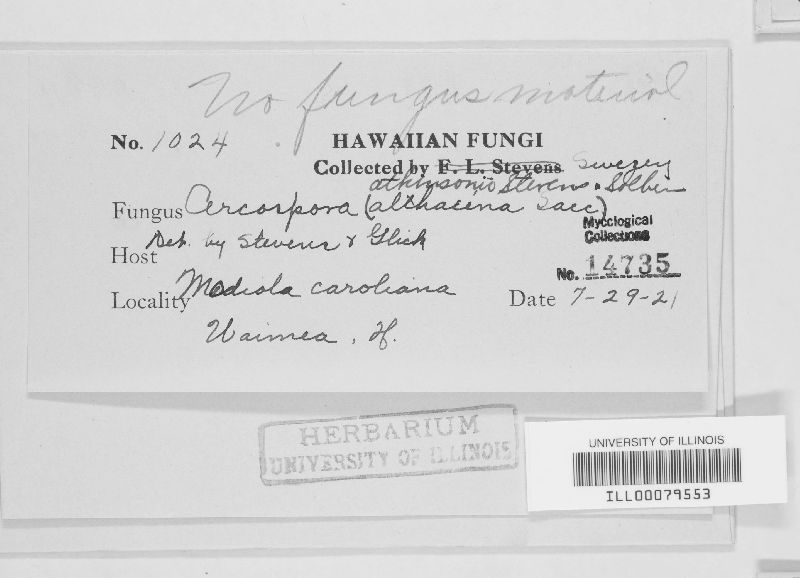 No fungus material
No. 1024 HAWAIIAN FUNGI
Collected by F. L. Stevens Swezey
atkinsonii Stevens & Solheim
Fungus Cercospora (althaeina Sacc)
Det. by Stevens & Glick
Host
Mycological
Collections
No. 14735
Modiola caroliana
Locality Date 7-29-21
Waimea, H.
HERBARIUM
UNIVERSITY OF ILLINOIS
UNIVERSITY OF ILLINOIS
ILL00079553